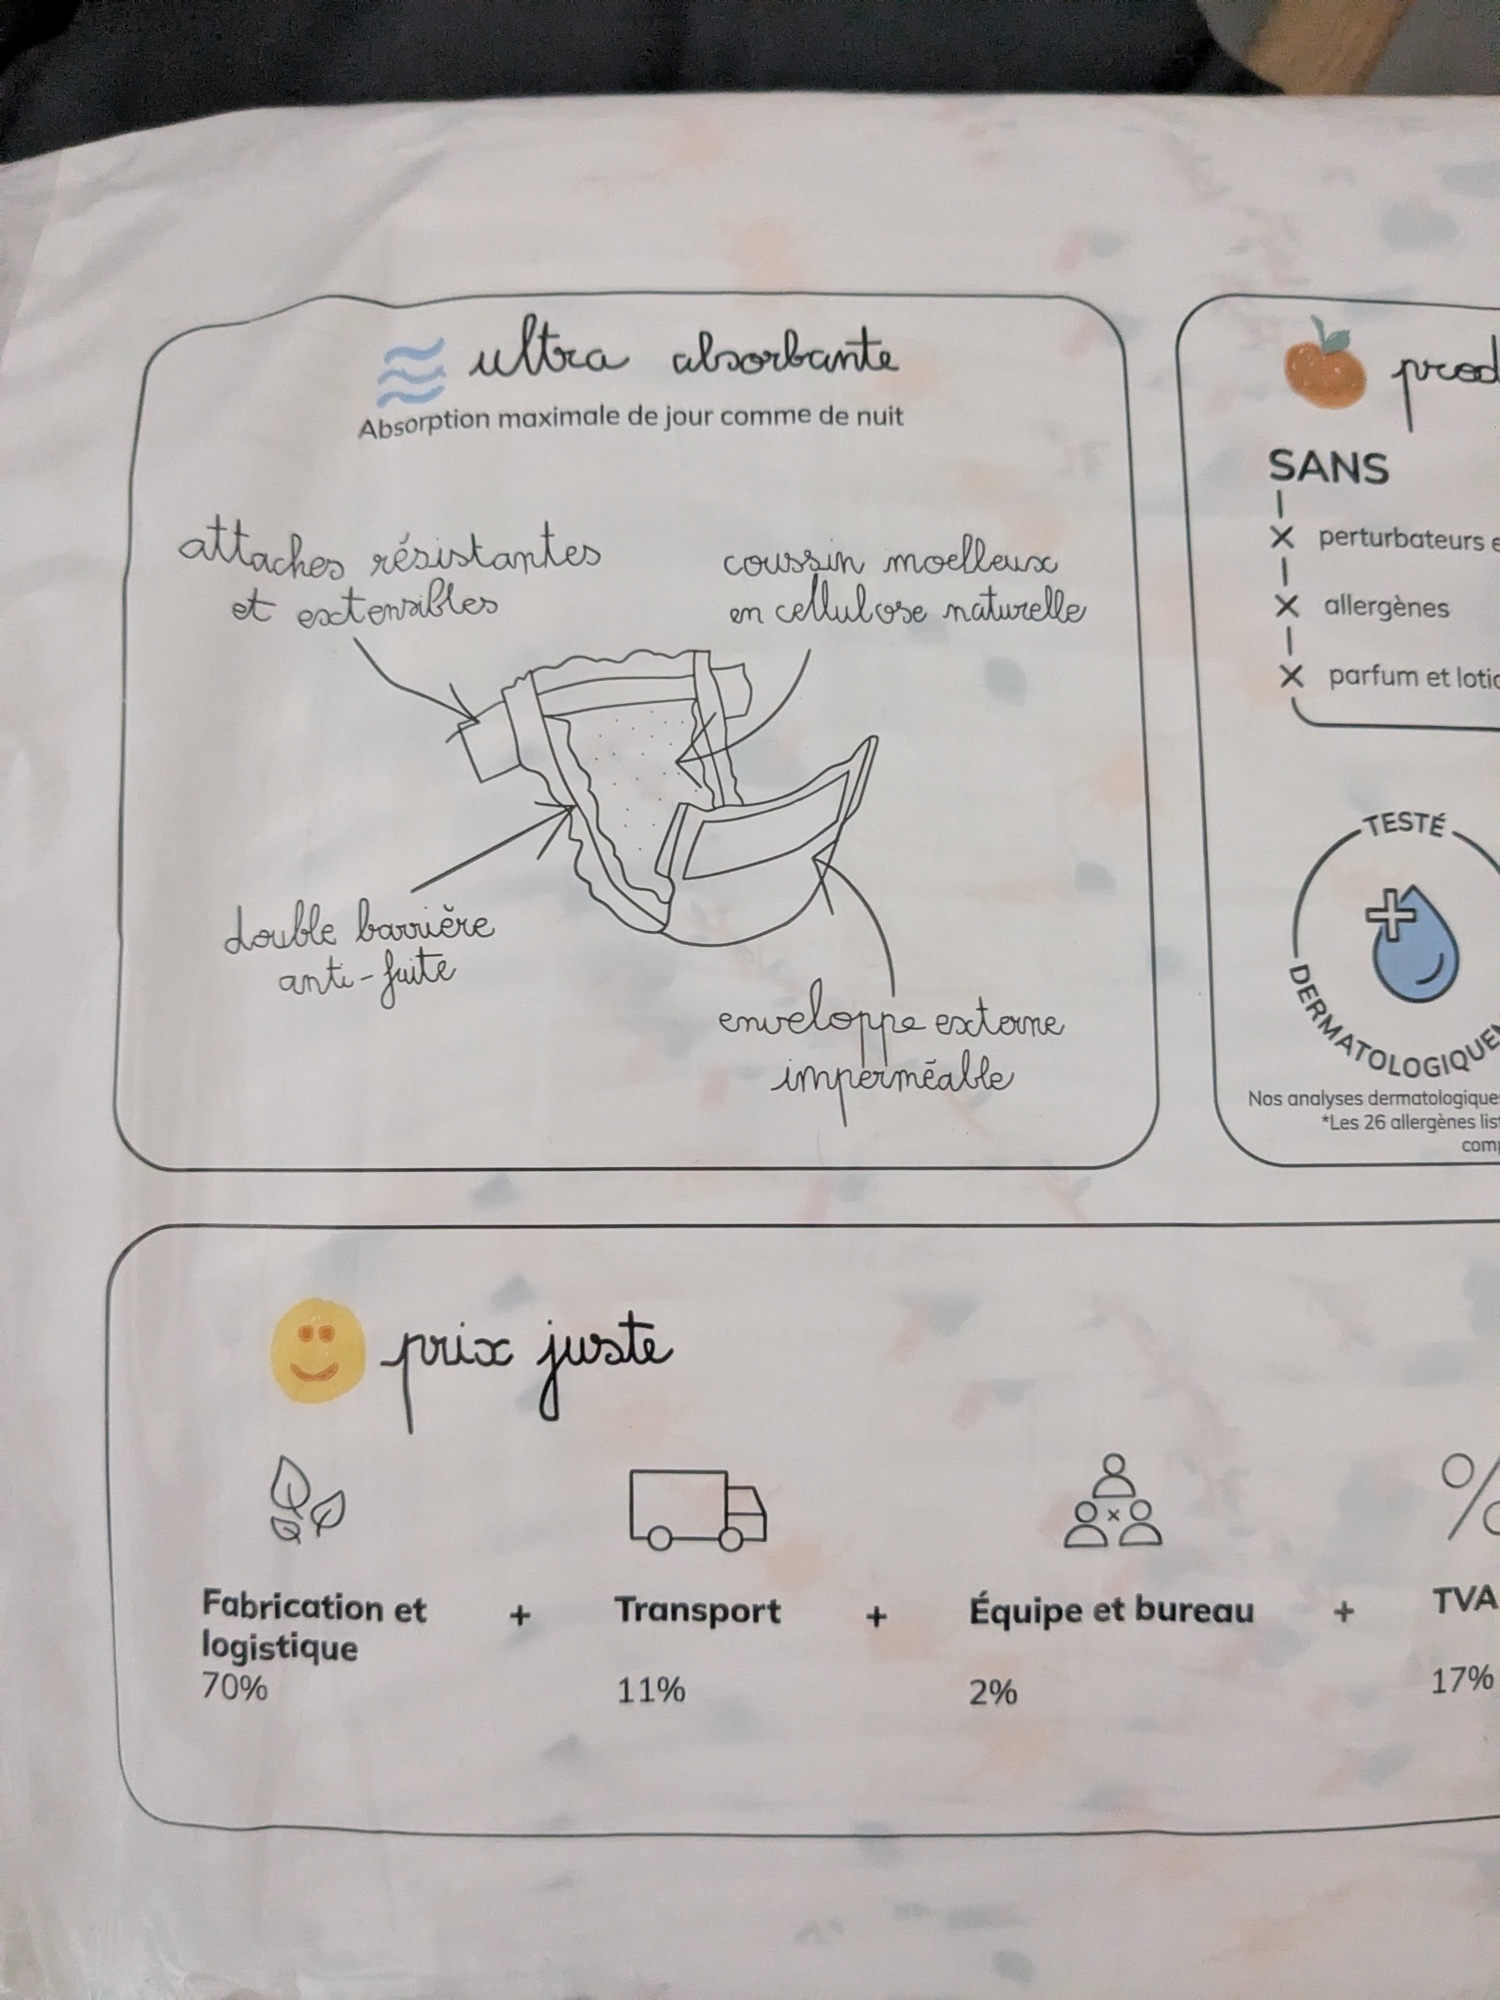 ultra absorbante
Absorption maximale de jour comme de nuit
attaches résistantes
et extensibles
coussin moelleux
en cellulose naturelle
double barrière
anti-fuite
enveloppe externe
imperméable
SANS
perturbateurs
allergènes
parfum et
TESTÉ
Nos analyses
*Les 26 allergènes
prix juste
Fabrication et
logistique
70%
+
Transport
11%
+
Équipe et bureau
2%
+
TVA
17%